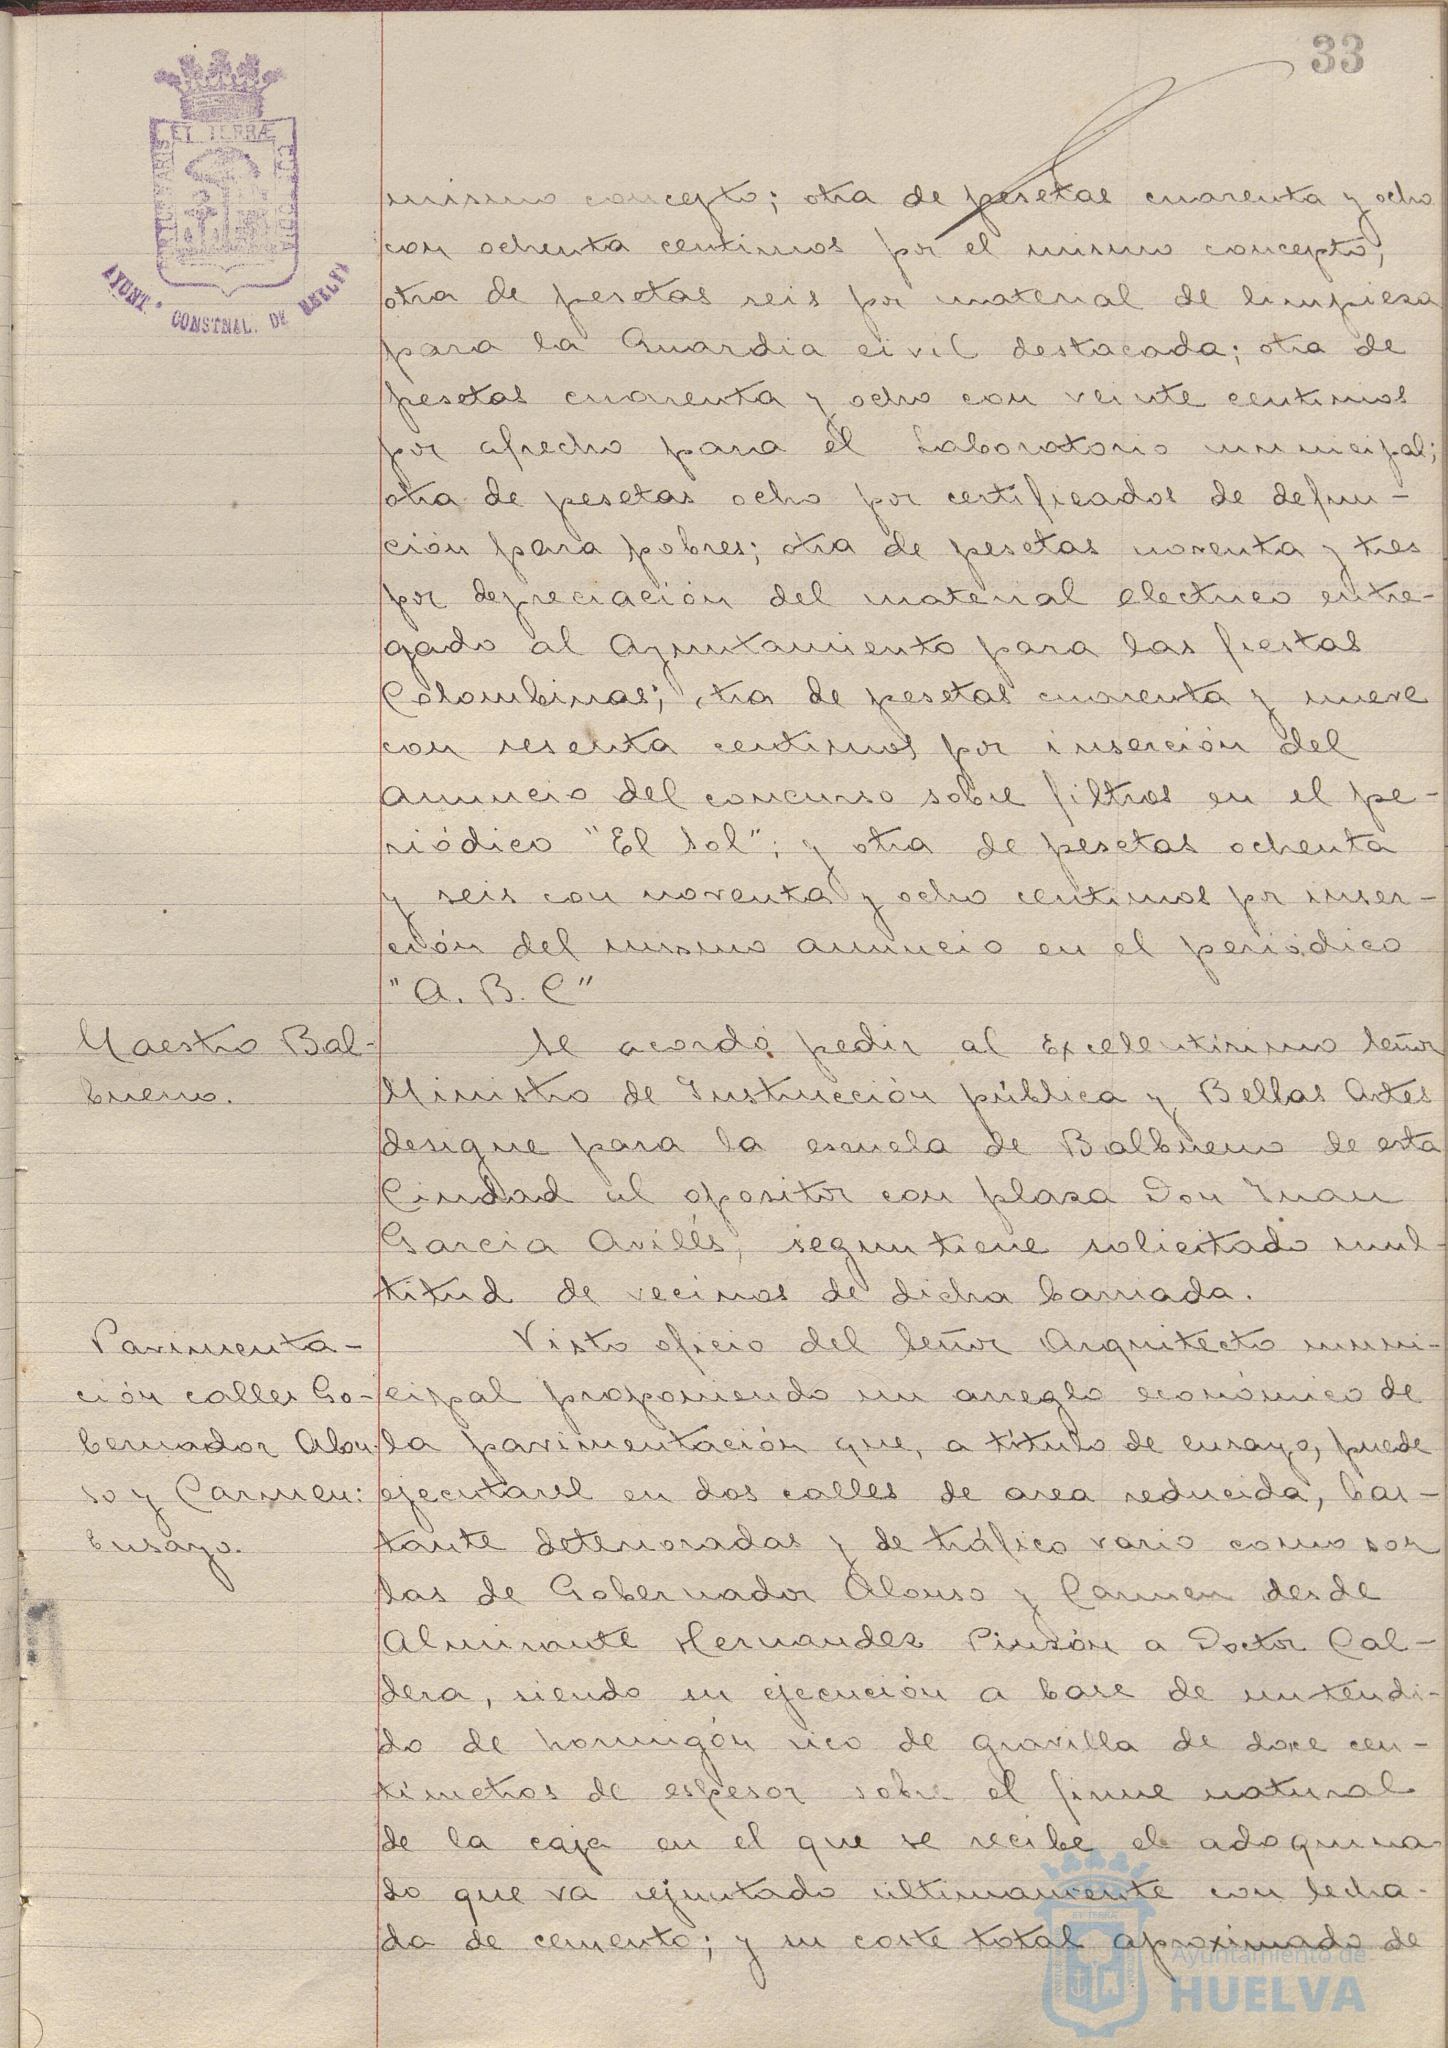 33
ET TERRÆ
AYUNT.º CONSTNAL. DE HUELVA
mismo concepto; otra de pesetas cuarenta y ocho
con ochenta centimos por el mismo concepto;
otra de pesetas seis por material de limpieza
para la Guardia civil destacada; otra de
pesetas cuarenta y ocho con veinte centimos
por afrecho para el Laboratorio municipal;
otra de pesetas ocho por certificados de defun-
ción para pobres; otra de pesetas noventa y tres
por depreciación del material electrico entre-
gado al Ayuntamiento para las fiestas
Colombinas; otra de pesetas cuarenta y nueve
con sesenta centimos por inserción del
anuncio del concurso sobre filtros en el pe-
riódico "El Sol"; y otra de pesetas ochenta
y seis con noventa y ocho centimos por inser-
ción del mismo anuncio en el periódico
"A. B. C"
Maestro Bal-
bueno.
Se acordó pedir al Excelentisimo Señor
Ministro de Instrucción pública y Bellas Artes
designe para la escuela de Balbueno de esta
Ciudad al opositor con plaza Don Juan
Garcia Avilés, segun tiene solicitado mul-
titud de vecinos de dicha barriada.
Pavimenta-
ción calles Go-
bernador Alon-
so y Carmen:
Ensayo.
Visto oficio del Señor Arquitecto muni-
cipal proponiendo un arreglo económico de
la pavimentación que, a título de ensayo, puede
ejecutarse en dos calles de area reducida, bas-
tante deterioradas y de tráfico vario como son
las de Gobernador Alonso y Carmen desde
Almirante Hernandez Pinzón a Doctor Cal-
dera, siendo su ejecución a base de un tendi-
do de hormigón rico de gravilla de doce cen-
tímetros de espesor sobre el firme natural
de la caja en el que se recibe el adoquina-
do que va rejuntado ultimamente con lecha-
da de cemento; y su coste total aproximado de
Ayuntamiento de
HUELVA